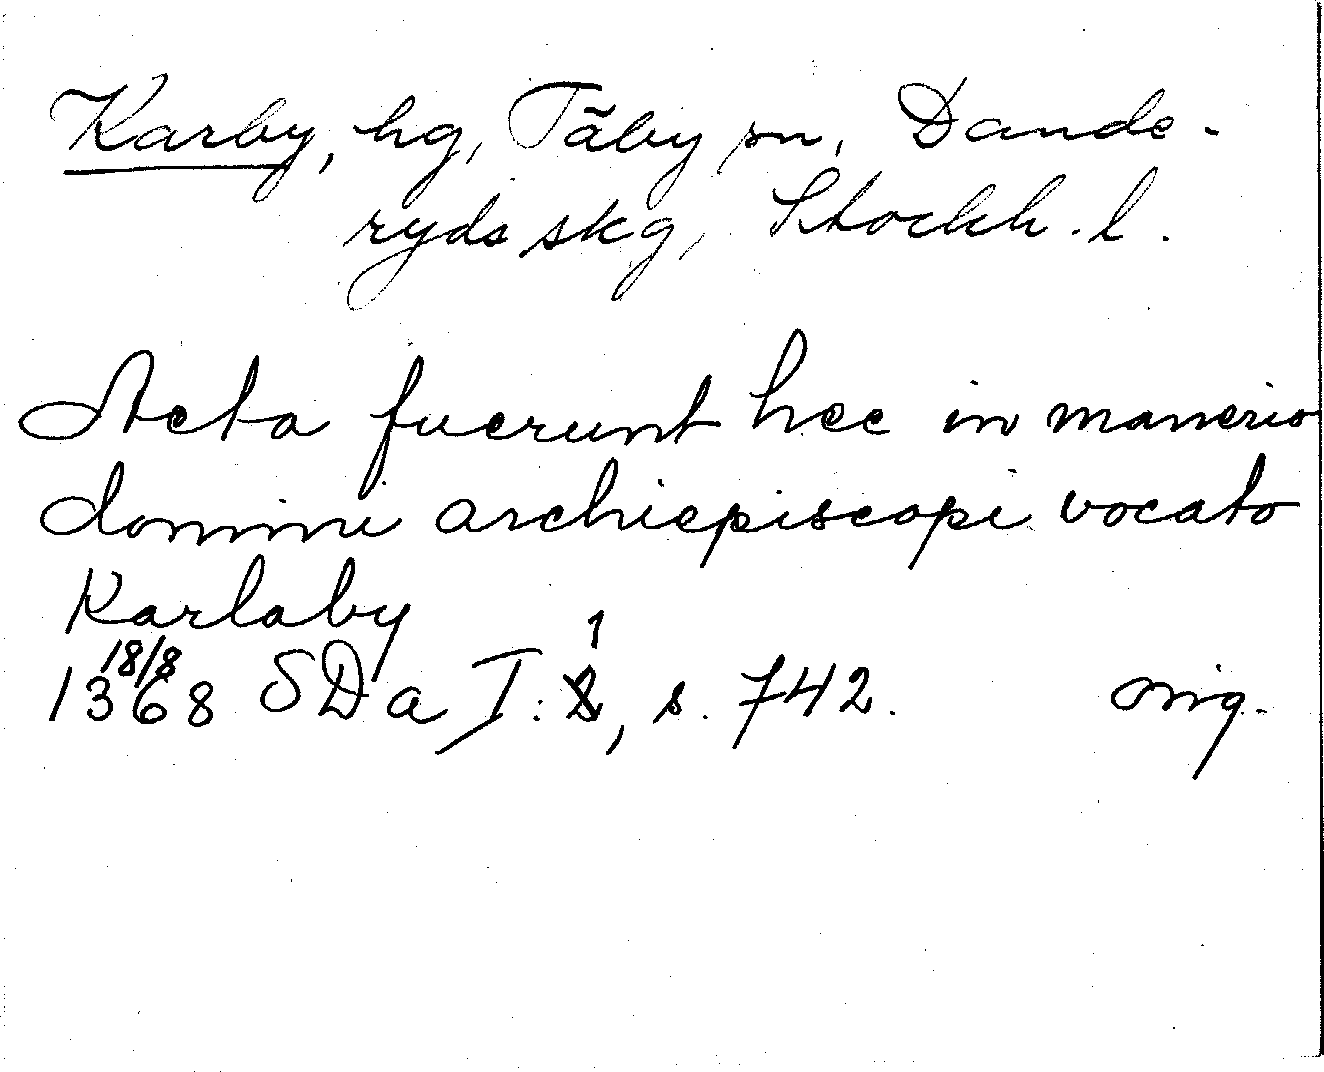 Karby, hg, Täby sn, Dande-
ryds skg, Stockh. l.
Acta fuerunt hec in manerio
domini archiepiscopi vocato
Karlaby
18/8 1
1368 SDa I: 8, s. 742. orig.